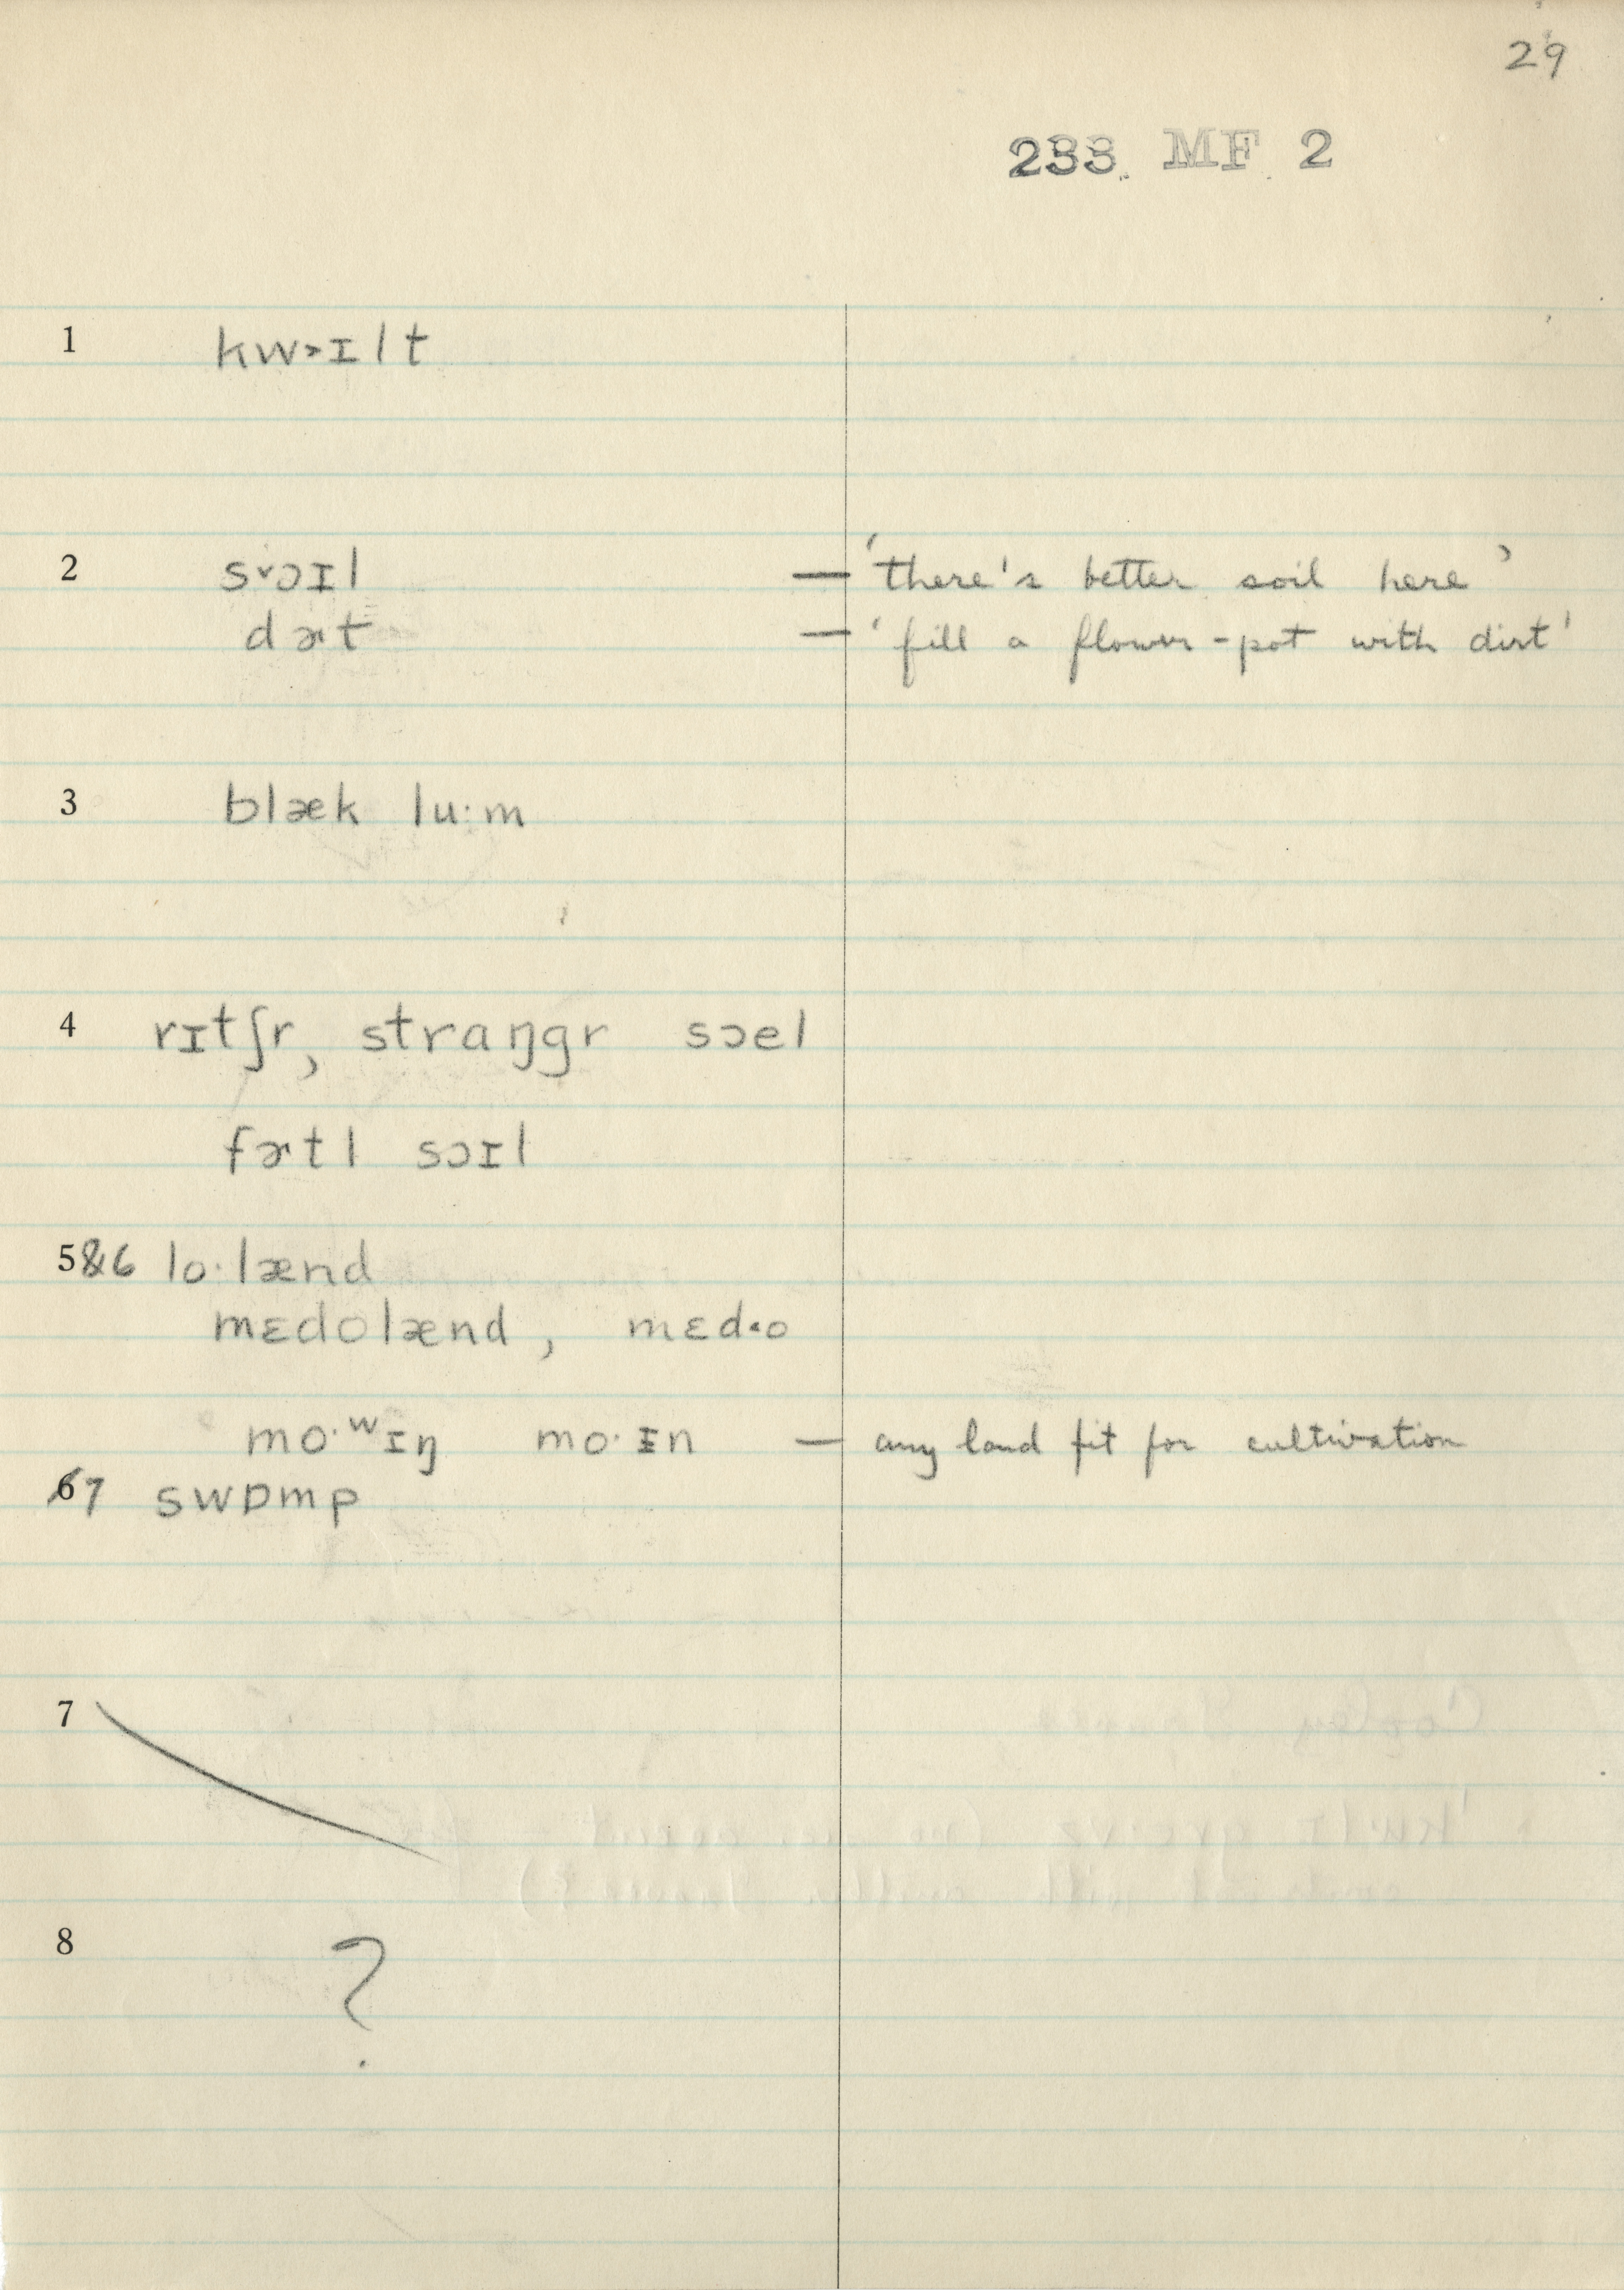 29
233 MF 2
1 kw˃ɪlt
2 s˅ɔɪl — 'there's better soil here'
dɚt — 'fill a flower-pot with dirt'
3 blæk lu·m
4 rɪtʃr, straŋgr sɔel
fɚtl sɔɪl
5&6 lo·lænd
mɛdolænd, mɛd˂o
mo·ʷɪŋ mo·ɪn — any land fit for cultivation
67 swɒmp
7
8 ?